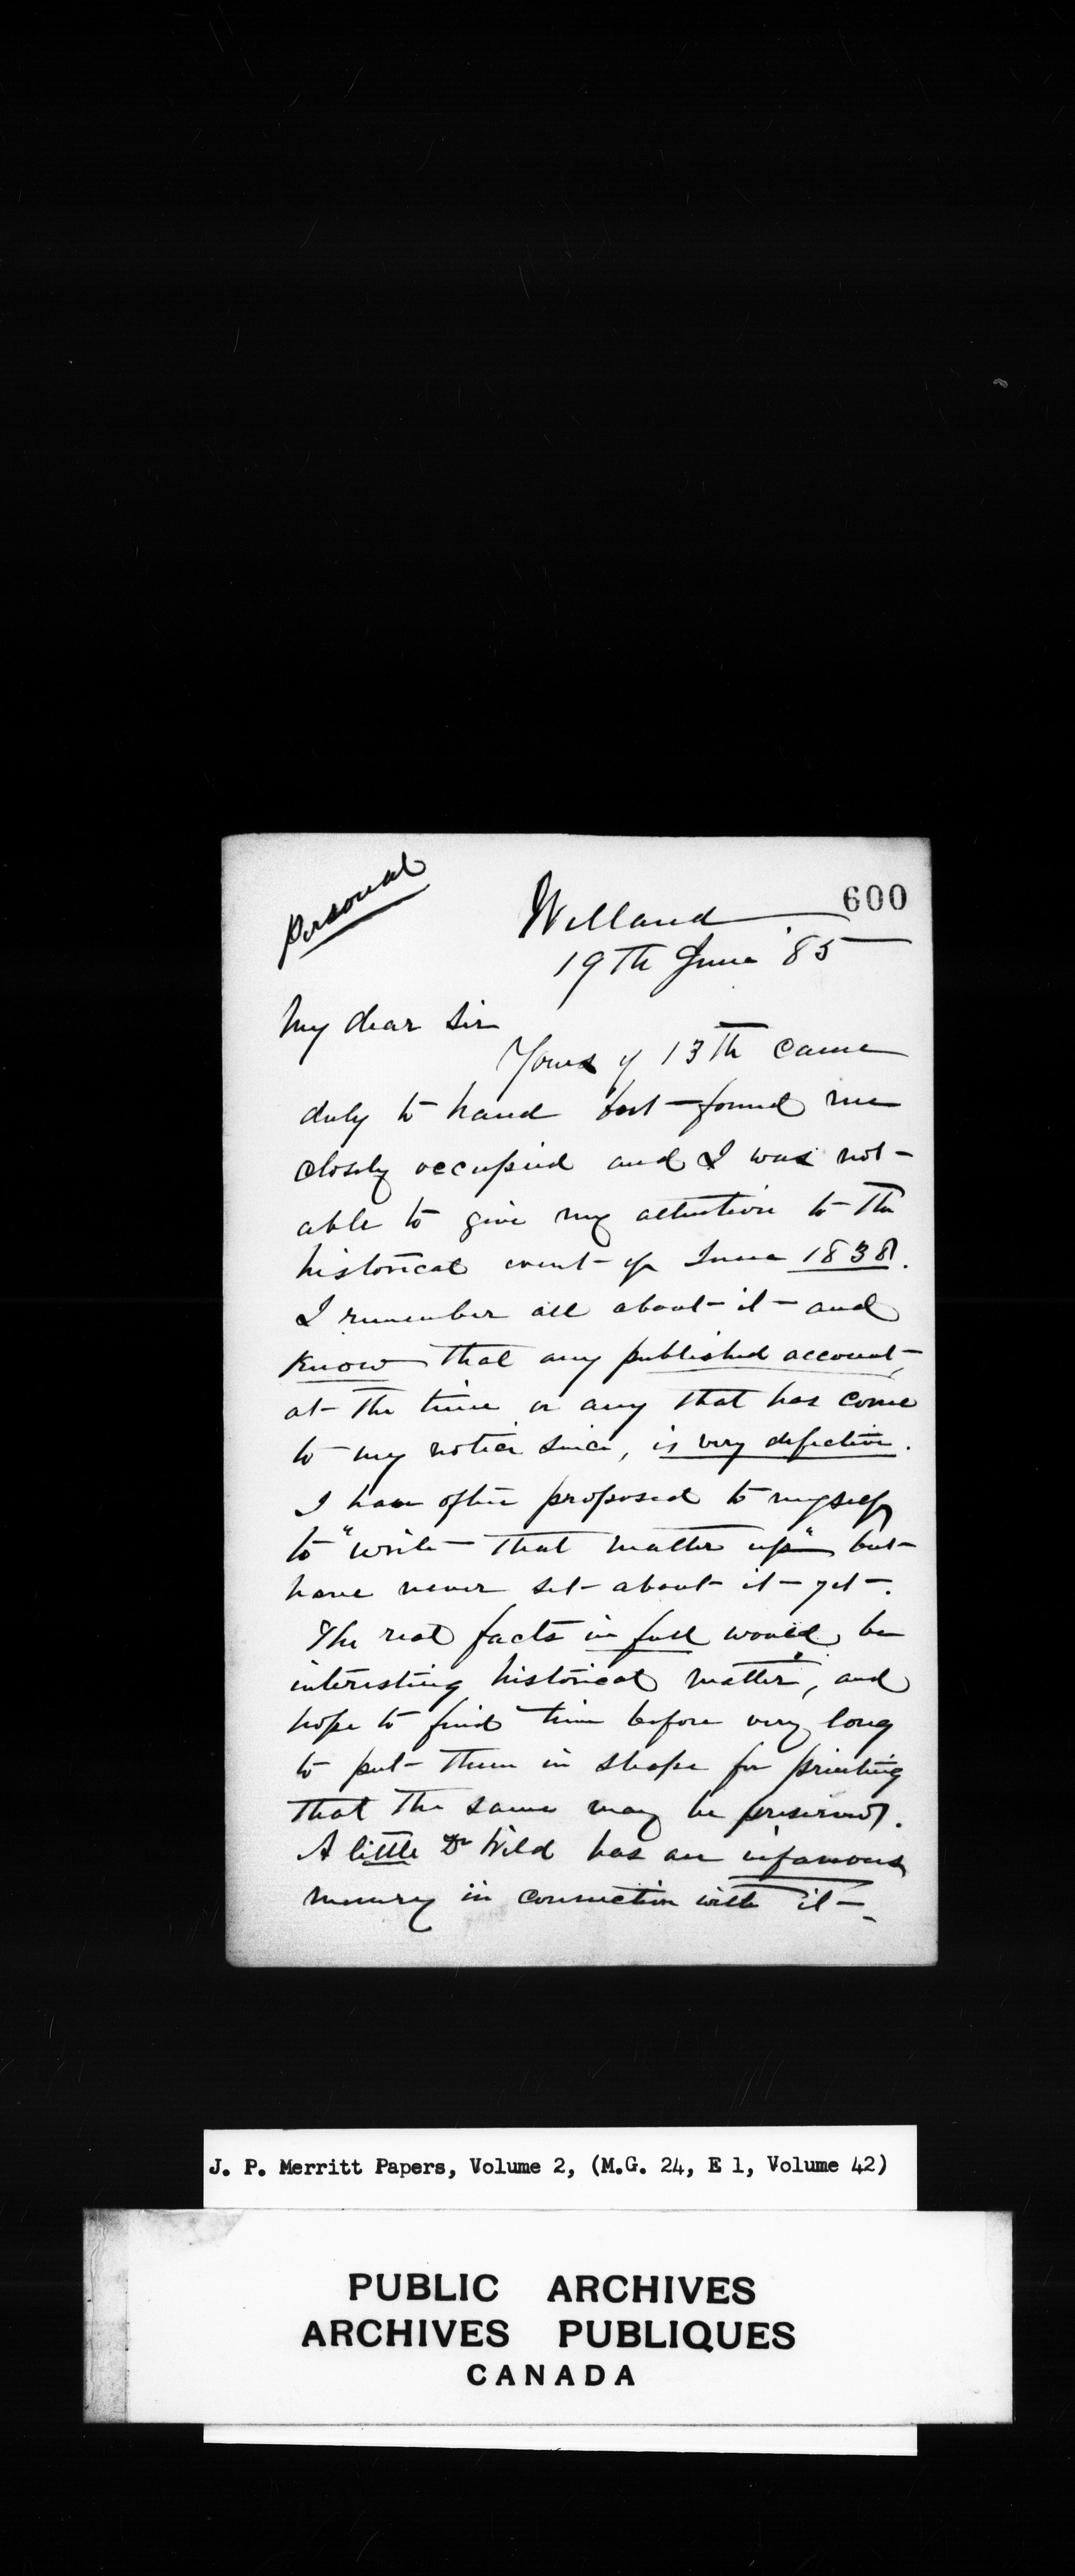 Personal
600
Welland
19th June '85
My dear Sir
Yours of 13th came
duly to hand but found me
closely occupied and I was not
able to give my attention to the
historical event of June 1838.
I remember all about it and
know that any published account
at the time or any that has come
to my notice since, is very defective.
I have often proposed to myself
to "write that matter up" but
have never set about it yet.
The real facts in full would be
interesting historical matter, and
hope to find time before very long
to put them in shape for printing
that the same may be preserved.
A little Dr Wild has an infamous
memory in connection with it
J. P. Merritt Papers, Volume 2, (M.G. 24, E 1, Volume 42)
PUBLIC ARCHIVES
ARCHIVES PUBLIQUES
CANADA